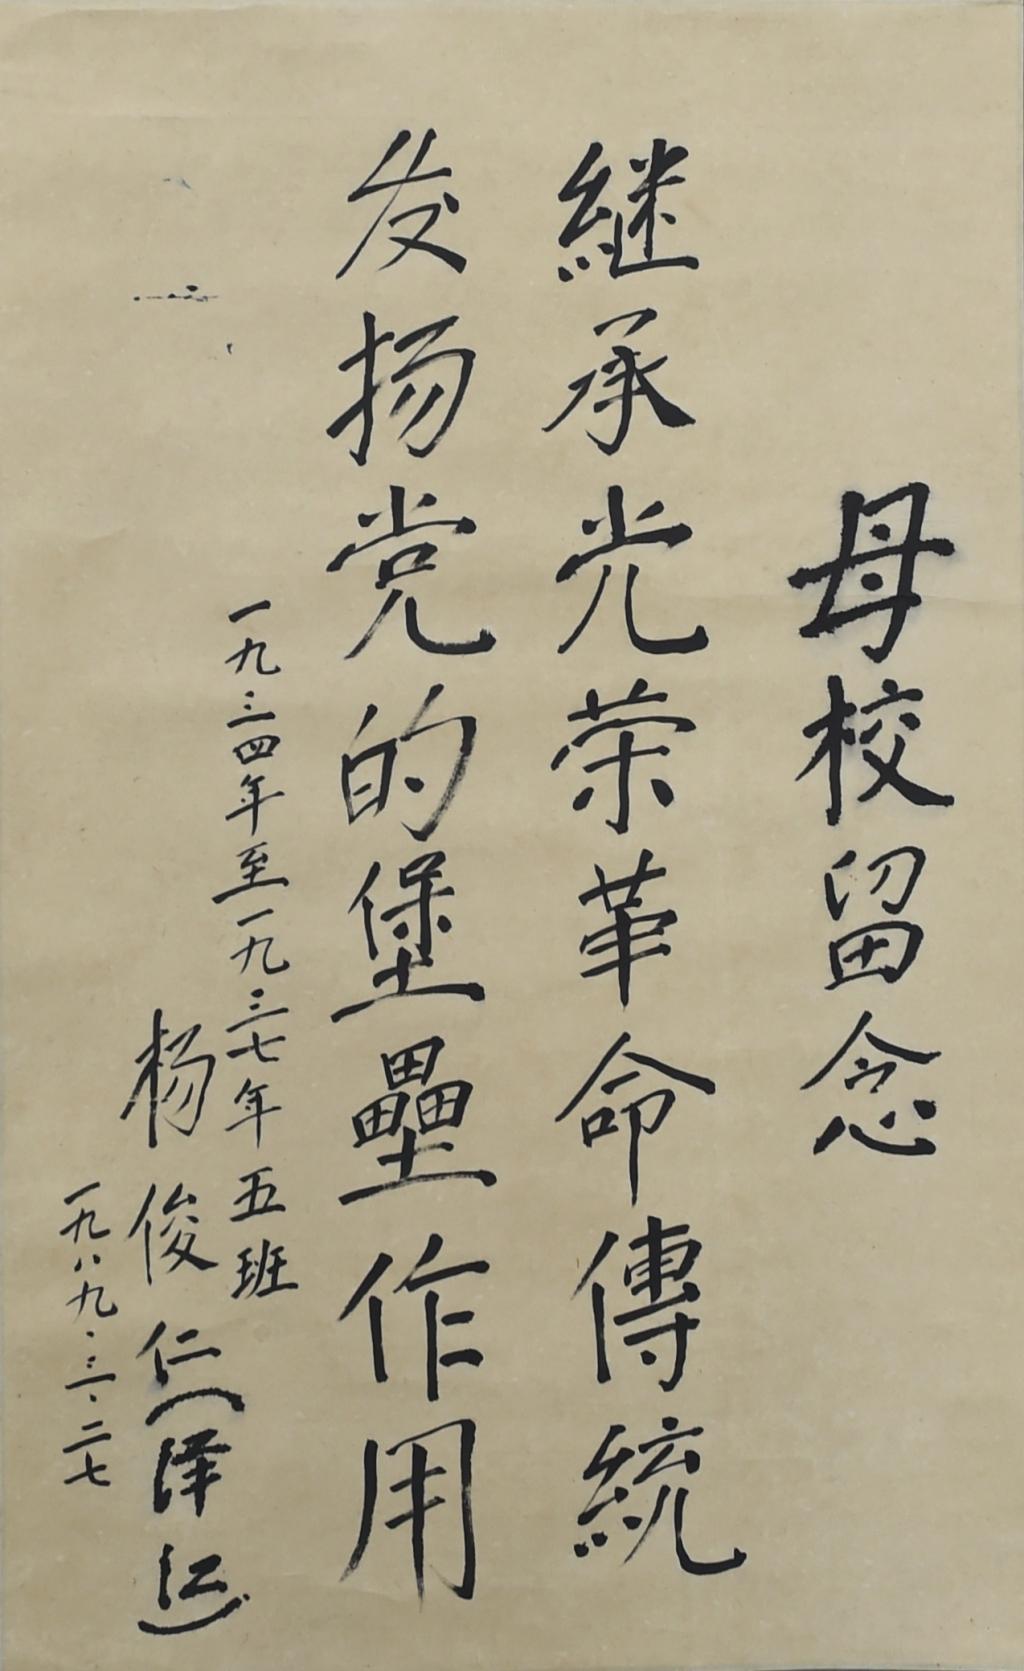 母校留念
继承光荣革命傳統
发扬党的堡壘作用
一九三四年至一九三七年五班
杨俊仁(澤江)
一九八九.三.二七